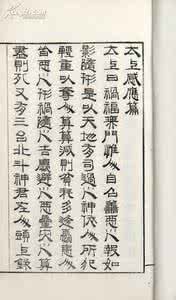 太上感應篇
太上曰禍福無門唯人自召善惡之報如
影隨形是以天地有司過之神依人所犯
輕重以奪人算算減則貧耗多逢憂患人
皆惡之刑禍隨之吉慶避之惡星災之算
盡則死又有三台北斗神君在人頭上錄